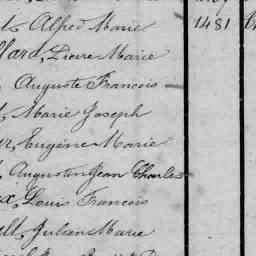 Alfred Marie 1481
llard, Pierre Marie
Auguste Francois
Marie Joseph
Eugène Marie
Augustin Jean Charles
x, Louis Francois
ll, Julien Marie